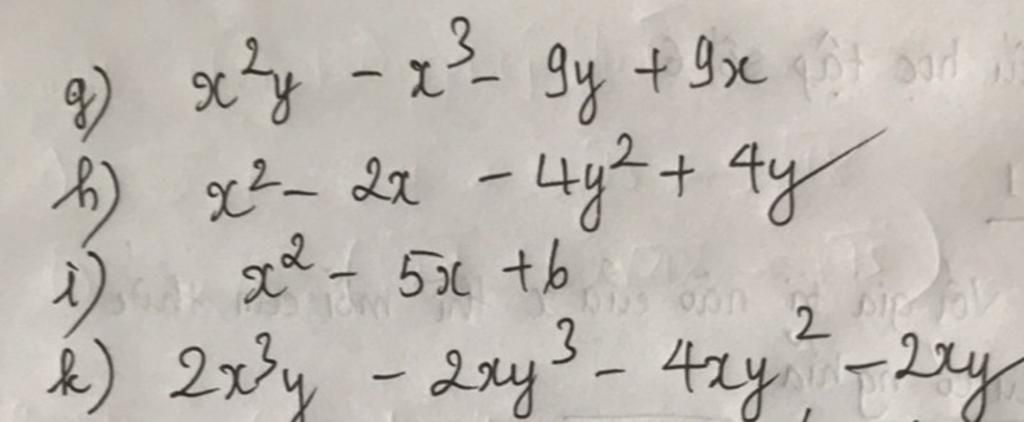 g) x²y - x³ - 9y + 9x
h) x² - 2x - 4y² + 4y
i) x² - 5x + 6
k) 2x³y - 2xy³ - 4xy² - 2xy